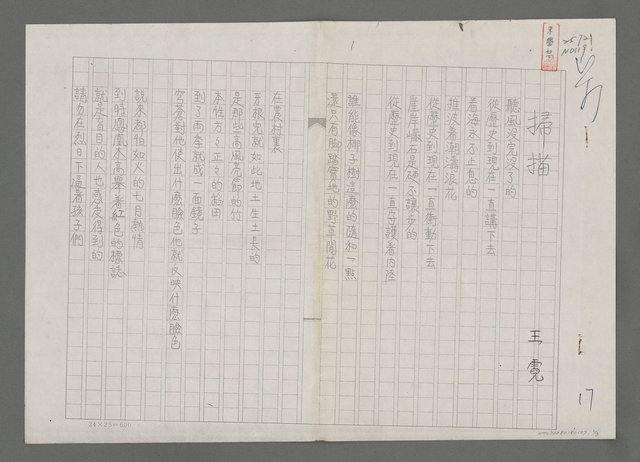 掃描
王霓
聽風沒完沒了的
從歷史到現在一直講下去
看海永不止息的
推波着潮濤浪花
從歷史到現在一直衝動下去
崖岸巉石是硬不讓步的
從歷史到現在一直守護着內陸
誰能像椰子樹這麼的隨和一點
還只有脚踏實地的野草開花
在農村裏
五穀就如此地土生土長的
是那些高風亮節的竹
本性方方正正的稻田
到了雨季就成一面鏡子
穹蒼對他使出什麼臉色他就反映什麼臉色
說來都怕如人的七月熱情
到時鳳凰木高舉着紅色的標誌
就是盲目的人也感受得到的
請勿在烈日下逼着孩子們
1
17
24×25=600